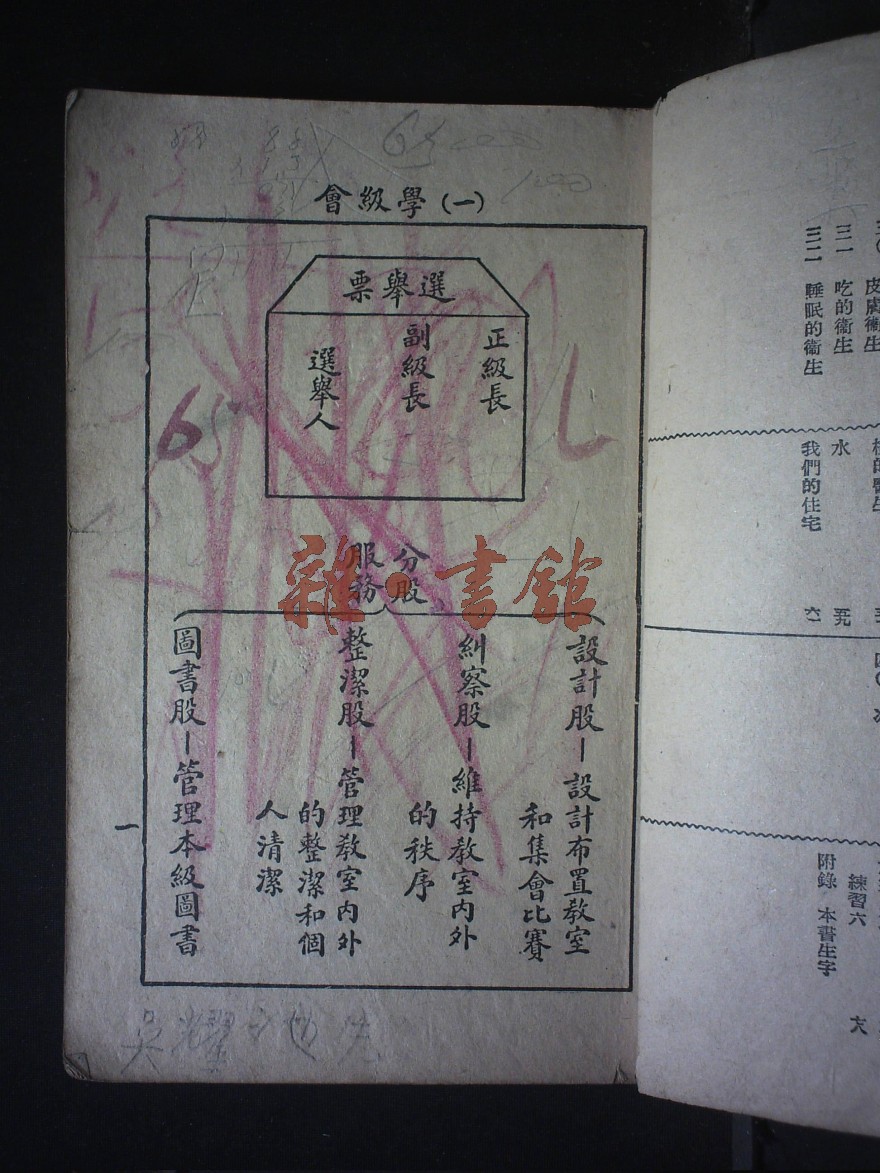 (一)學級會
選舉票
正級長
副級長
選舉人
分股
服務
設計股—設計布置教室
和集會比賽
糾察股—維持教室內外
的秩序
整潔股—管理教室內外
的整潔和個
人清潔
圖書股—管理本級圖書
一
65
65
雜·書館
皮膚衞生
三一 吃的衞生
三二 睡眠的衞生
水 五九
我們的住宅 六一
練習六
附錄 本書生字 六八